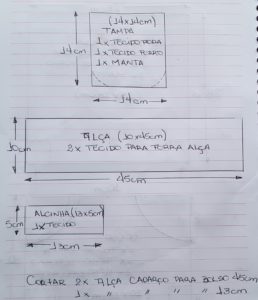 (14x14cm)
TAMPA
1x TECIDO FORA
1x TECIDO FORRO
1x MANTA
14cm
14cm
ALÇA (10x45cm)
2x TECIDO PARA FORRA ALÇA
10cm
45cm
ALCINHA (13x5cm)
1x TECIDO
5cm
13cm
CORTAR 2x ALÇA CADARÇO PARA BOLSO 45cm
1x " " " " 13cm